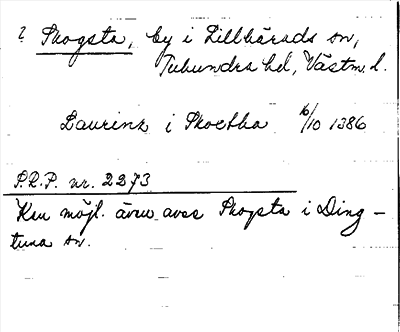 ? Skogsta, by i Lillhärads sn,
Tuhundra hd, Västm. l.
Laurinz i Skoctha 16/10 1386
S.R.P. nr. 2273
Kan möjl. även avse Skogsta i Ding-
tuna sn.